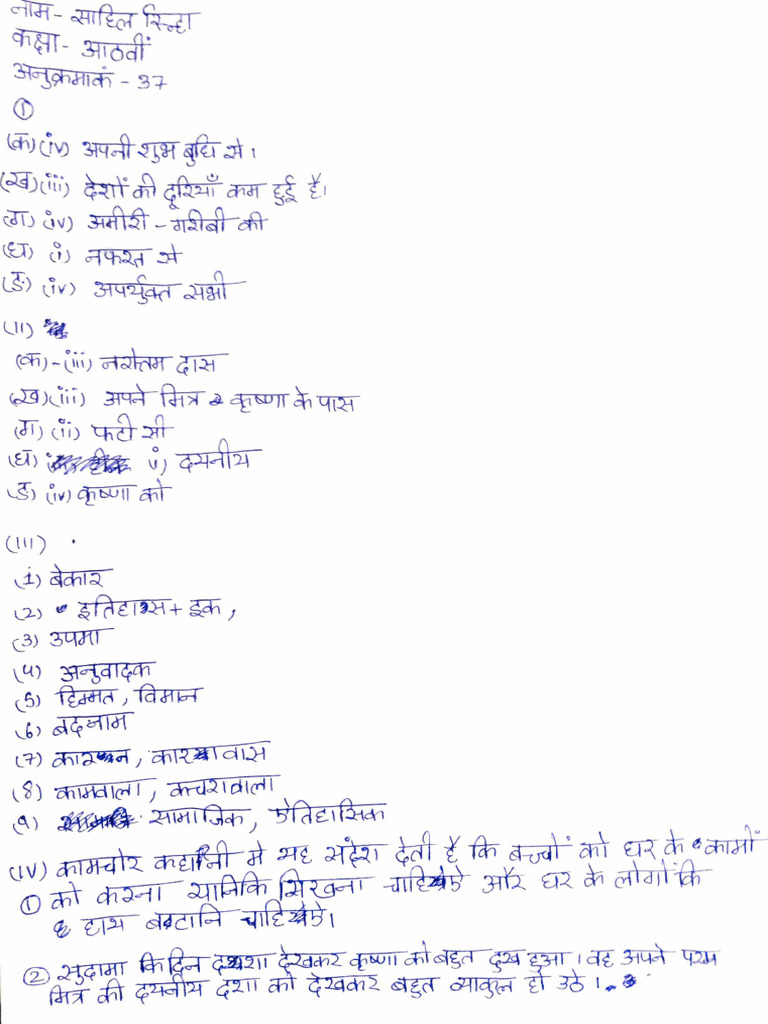 नाम - साहिल सिन्हा
कक्षा - आठवीं
अनुक्रमाकं - 37
①
(क) (iv) अपनी शुभ बुधि से।
(ख) (iii) देशों की दूरियाँ कम हुई है।
(ग) (iv) अमीरी - गरीबी की
(घ) (i) नफरत से
(ङ) (iv) अपर्युक्त सभी
(II)
(क) - (iii) नरोत्तम दास
(ख) (iii) अपने मित्र कृष्णा के पास
(ग) (ii) फटी सी
(घ) (i) दयनीय
(ङ) (iv) कृष्णा को
(III)
(1) बेकार
(2) इतिहास + इक,
(3) उपमा
(4) अनुवादक
(5) हिम्मत, विमान
(6) बदनाम
(7) कारन, कारावास
(8) कामवाला, कचरावाला
(9) सामाजिक, ऐतिहासिक
(IV) कामचोर कहानी मे यह संदेश देती है कि बच्चों को घर के कामों
① को करना यानिकि सिखना चाहिऐ और घर के लोगों कि
हाथ बटानि चाहिऐ।
② सुदामा कि दिन दशा देखकर कृष्णा को बहुत दुख हुआ। वह अपने परम
मित्र की दयनीय दशा को देखकर बहुत व्याकुल हो उठे।